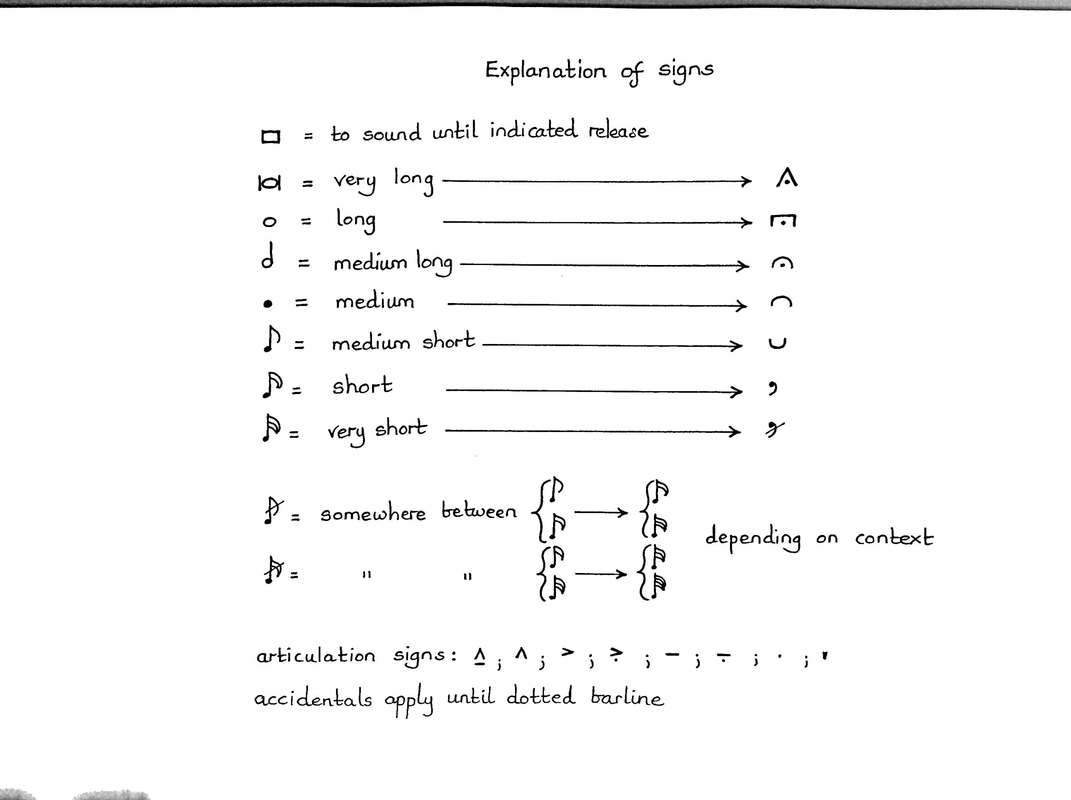 Explanation of signs
= to sound until indicated release
= very long
= long
= medium long
= medium
= medium short
= short
= very short
= somewhere between
depending on context
= " "
articulation signs: ^ ; ^ ; > ; > ; – ; – ; · ; '
accidentals apply until dotted barline